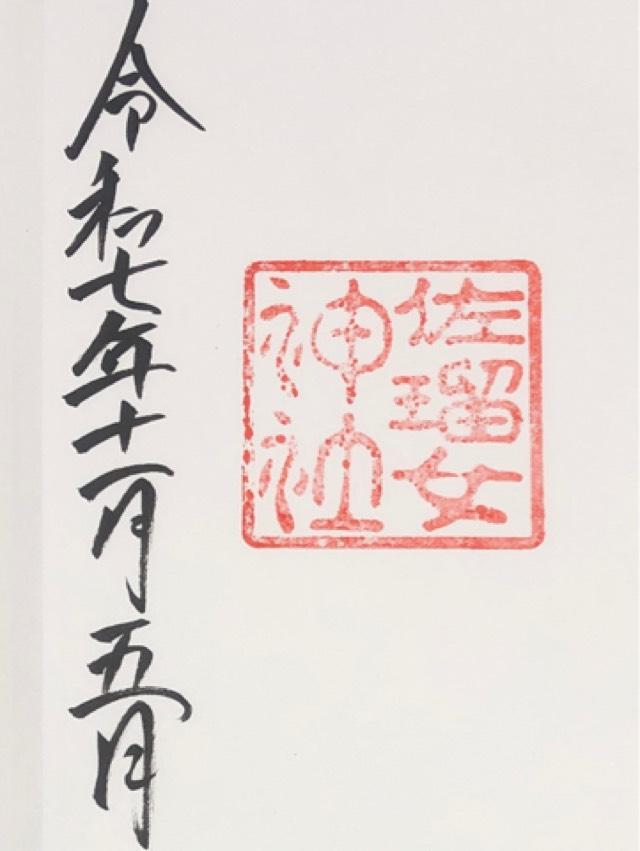 佐瑠女
神社
令和七年十一月五日